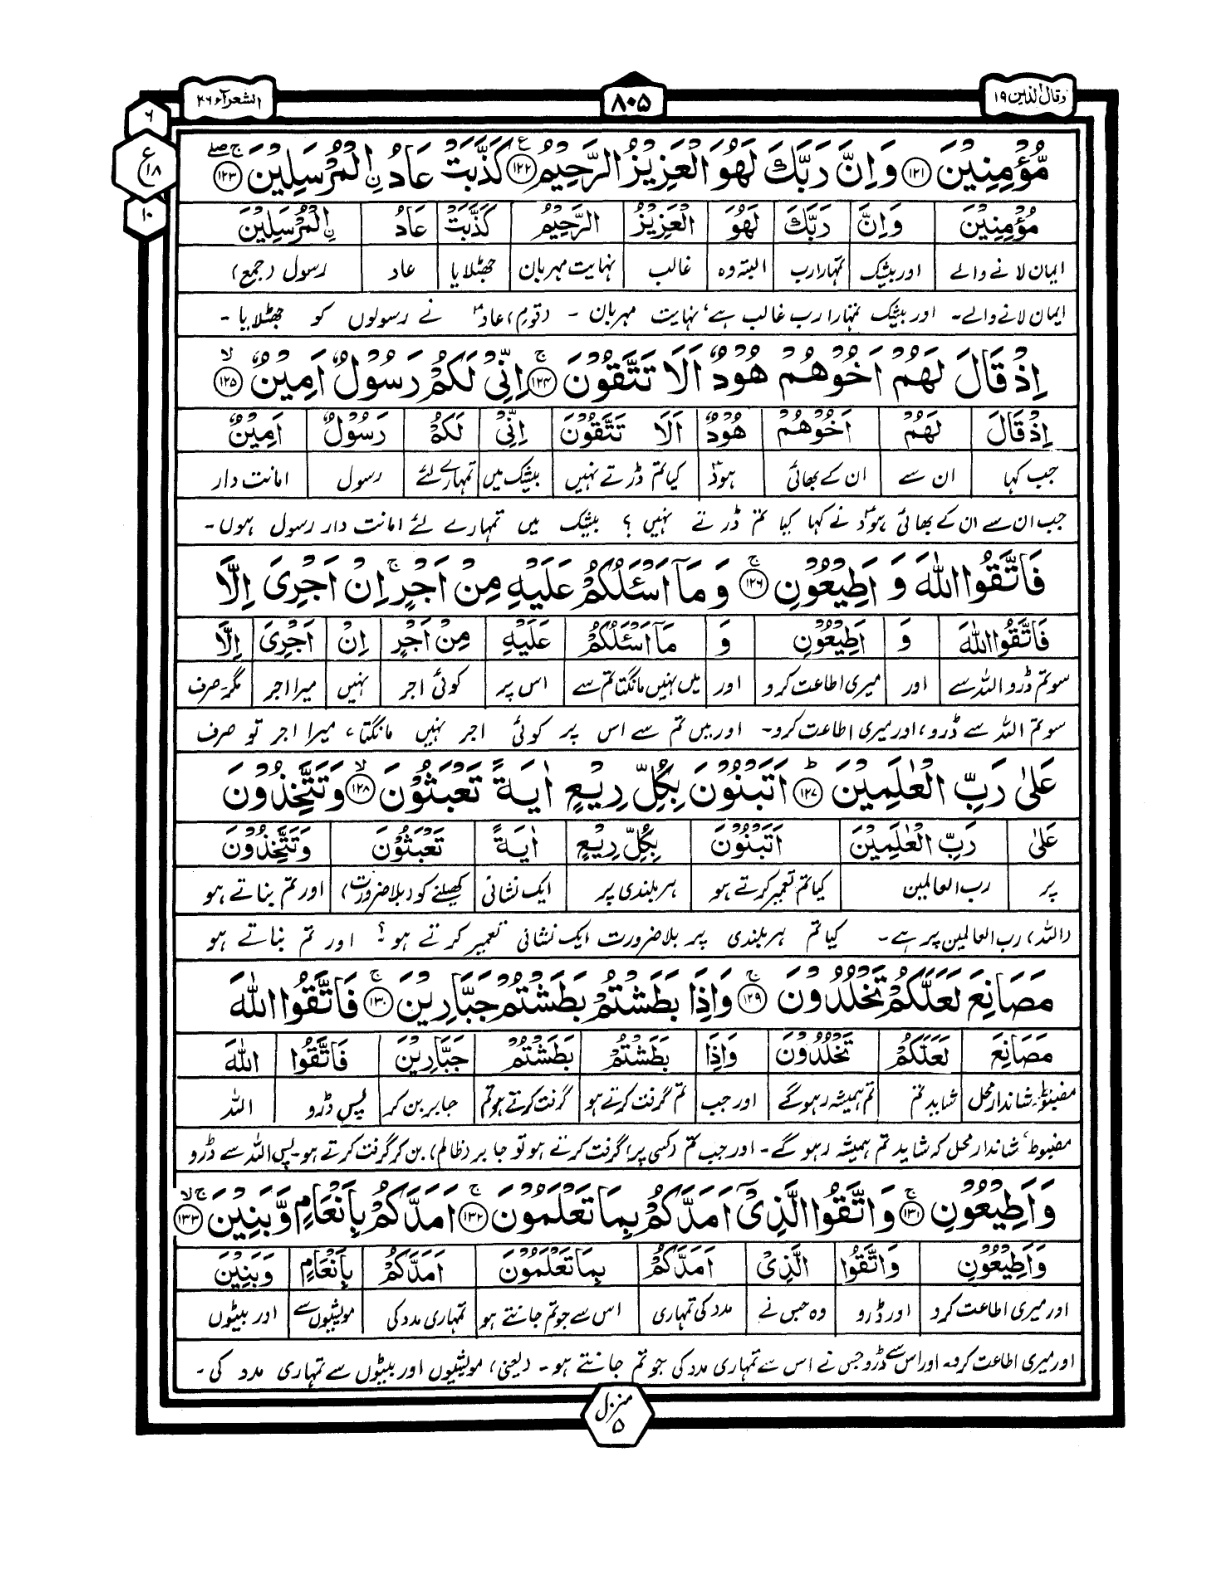 وقال الذین ۱۹
۸۰۵
الشعرآء ۲۶
۶
ع
۱۸
۱۰
مُّؤْمِنِيْنَ ﴿۱۲۱﴾ وَاِنَّ رَبَّكَ لَهُوَ الْعَزِيْزُ الرَّحِيْمُ ﴿۱۲۲﴾ كَذَّبَتْ عَادُ ۨالْمُرْسَلِيْنَ ﴿۱۲۳﴾
مُّؤْمِنِيْنَ وَاِنَّ رَبَّكَ لَهُوَ الْعَزِيْزُ الرَّحِيْمُ كَذَّبَتْ عَادُ ۨالْمُرْسَلِيْنَ
ایمان لانے والے اور بیشک تمہارا رب البتہ وہ غالب نہایت مہربان جھٹلایا عاد رسول (جمع)
ایمان لانے والے۔ اور بیشک تمہارا رب غالب ہے، نہایت مہربان ۔ (قوم) عاد نے رسولوں کو جھٹلایا ۔
اِذْ قَالَ لَهُمْ اَخُوْهُمْ هُوْدٌ اَلَا تَتَّقُوْنَ ﴿۱۲۴﴾ اِنِّيْ لَكُمْ رَسُوْلٌ اَمِيْنٌ ﴿۱۲۵﴾
اِذْ قَالَ لَهُمْ اَخُوْهُمْ هُوْدٌ اَلَا تَتَّقُوْنَ اِنِّيْ لَكُمْ رَسُوْلٌ اَمِيْنٌ
جب کہا ان سے ان کے بھائی ہودؑ کیا تم ڈرتے نہیں بیشک میں تمہارے لئے رسول امانت دار
جب ان سے ان کے بھائی ہودؑ نے کہا کیا تم ڈرتے نہیں ؟ بیشک میں تمہارے لئے امانت دار رسول ہوں۔
فَاتَّقُوا اللّٰهَ وَ اَطِيْعُوْنِ ﴿۱۲۶﴾ وَ مَآ اَسْـَٔلُكُمْ عَلَيْهِ مِنْ اَجْرٍ ۚ اِنْ اَجْرِيَ اِلَّا
فَاتَّقُوا اللّٰهَ وَ اَطِيْعُوْنِ وَ مَآ اَسْـَٔلُكُمْ عَلَيْهِ مِنْ اَجْرٍ اِنْ اَجْرِيَ اِلَّا
سو تم ڈرو اللہ سے اور میری اطاعت کرو اور میں نہیں مانگتا تم سے اس پر کوئی اجر نہیں میرا اجر مگر صرف
سو تم اللہ سے ڈرو، اور میری اطاعت کرو۔ اور میں تم سے اس پر کوئی اجر نہیں مانگتا، میرا اجر تو صرف
عَلٰى رَبِّ الْعٰلَمِيْنَ ﴿۱۲۷﴾ اَتَبْنُوْنَ بِكُلِّ رِيْعٍ اٰيَةً تَعْبَثُوْنَ ﴿۱۲۸﴾ وَتَتَّخِذُوْنَ
عَلٰى رَبِّ الْعٰلَمِيْنَ اَتَبْنُوْنَ بِكُلِّ رِيْعٍ اٰيَةً تَعْبَثُوْنَ وَتَتَّخِذُوْنَ
پر رب العالمین کیا تم تعمیر کرتے ہو ہر بلندی پر ایک نشانی کھیلنے کو (بلا ضرورت) اور تم بناتے ہو
(اللہ) رب العالمین پر ہے۔ کیا تم ہر بلندی پر بلا ضرورت ایک نشانی تعمیر کرتے ہو؟ اور تم بناتے ہو
مَصَانِعَ لَعَلَّكُمْ تَخْلُدُوْنَ ﴿۱۲۹﴾ وَاِذَا بَطَشْتُمْ بَطَشْتُمْ جَبَّارِيْنَ ﴿۱۳۰﴾ فَاتَّقُوا اللّٰهَ
مَصَانِعَ لَعَلَّكُمْ تَخْلُدُوْنَ وَاِذَا بَطَشْتُمْ بَطَشْتُمْ جَبَّارِيْنَ فَاتَّقُوا اللّٰهَ
مضبوط، شاندار محل شاید تم تم ہمیشہ رہو گے اور جب تم گرفت کرتے ہو گرفت کرتے ہو تم جابر بن کر پس ڈرو اللہ
مضبوط، شاندار محل کہ شاید تم ہمیشہ رہو گے۔ اور جب تم (کسی پر) گرفت کرتے ہو تو جابر (ظالم) بن کر گرفت کرتے ہو۔ پس اللہ سے ڈرو
وَاَطِيْعُوْنِ ﴿۱۳۱﴾ وَاتَّقُوا الَّذِيْٓ اَمَدَّكُمْ بِمَا تَعْلَمُوْنَ ﴿۱۳۲﴾ اَمَدَّكُمْ بِاَنْعَامٍ وَّبَنِيْنَ ﴿۱۳۳﴾
وَاَطِيْعُوْنِ وَاتَّقُوا الَّذِيْٓ اَمَدَّكُمْ بِمَا تَعْلَمُوْنَ اَمَدَّكُمْ بِاَنْعَامٍ وَّبَنِيْنَ
اور میری اطاعت کرو اور ڈرو وہ جس نے مدد کی تمہاری اس سے جو تم جانتے ہو تمہاری مدد کی مویشیوں سے اور بیٹوں
اور میری اطاعت کرو۔ اور اس سے ڈرو جس نے اس سے تمہاری مدد کی جو تم جانتے ہو ۔ (یعنی) مویشیوں اور بیٹوں سے تمہاری مدد کی ۔
منزل
۵